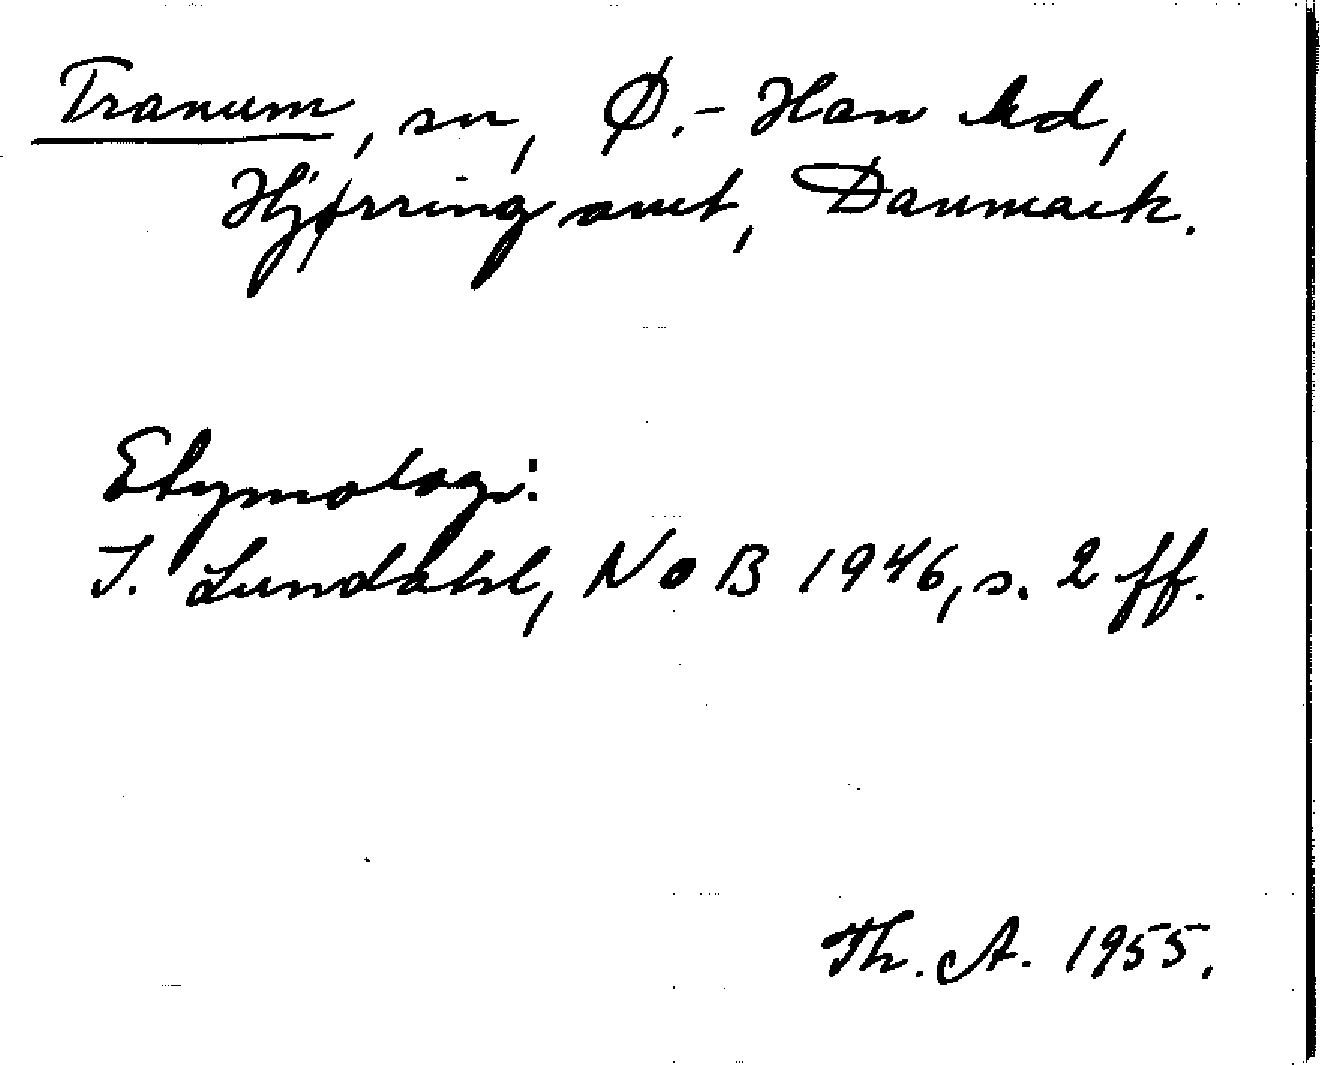 Tranum, sn, Ø.-Han hd,
Hjørring amt, Danmark.
Etymologi:
I. Lundahl, NoB 1946, s. 2 ff.
Th. A. 1955.